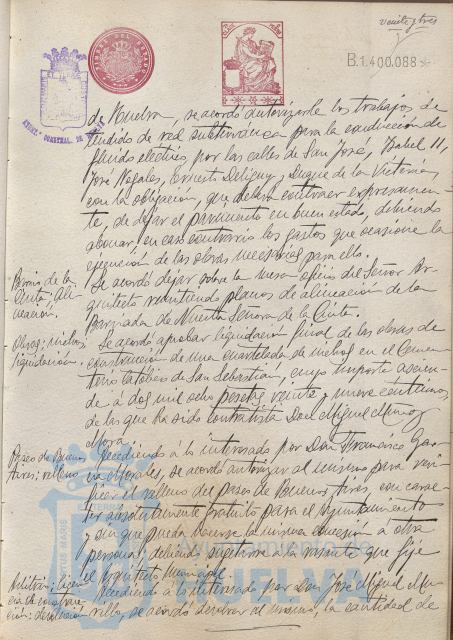 veinte y tres
B.1.400.088
AYUNT. CONSTNAL. DE
de Huelva, se acordó autorizarle los trabajos de
tendido de red subterránea para la conducción de
fluido electrico, por las calles de San José, Isabel II,
José Nogales, Ernesto Deligny, Duque de la Victoria,
con la obligacion, que deberá contraer expresamen-
te, de dejar el pavimento en buen estado, debiendo
abonar en caso contrario los gastos que ocasione la
ejecución de las obras necesarias para ello.
Barriada de la
Cinta: Ali-
neación.
Se acordó dejar sobre la mesa oficio del Señor Ar-
quitecto remitiendo planos de alineación de la
Barriada de Nuestra Señora de la Cinta.
Obras; nichos;
liquidación.
Se acordó aprobar liquidación final de las obras de
construcción de una cuartelada de nichos en el Cemen-
terio Católico de San Sebastián, cuyo importe ascien-
de á dos mil ocho pesetas veinte y nueve céntimos,
de las que ha sido contratista Don Miguel Muñoz
Mora.
Paseo de Buenos
Aires: relleno
Accediendo á lo interesado por Don Francisco Gar-
cia Morales, se acordó autorizar al mismo para veri-
ficar el relleno del paseo de Buenos Aires, con carac-
ter absolutamente gratuito para el Ayuntamiento
y sin que pueda hacerse la misma concesión á otra
persona, debiendo sujetarse á la rasante que fije
el Arquitecto Municipal.
Accediendo á lo interesado por Don José Miguel
villo, se acordó devolver al mismo, la cantidad de
AYUNTAMIENTO DE
HUELVA
PORTUS MARIS